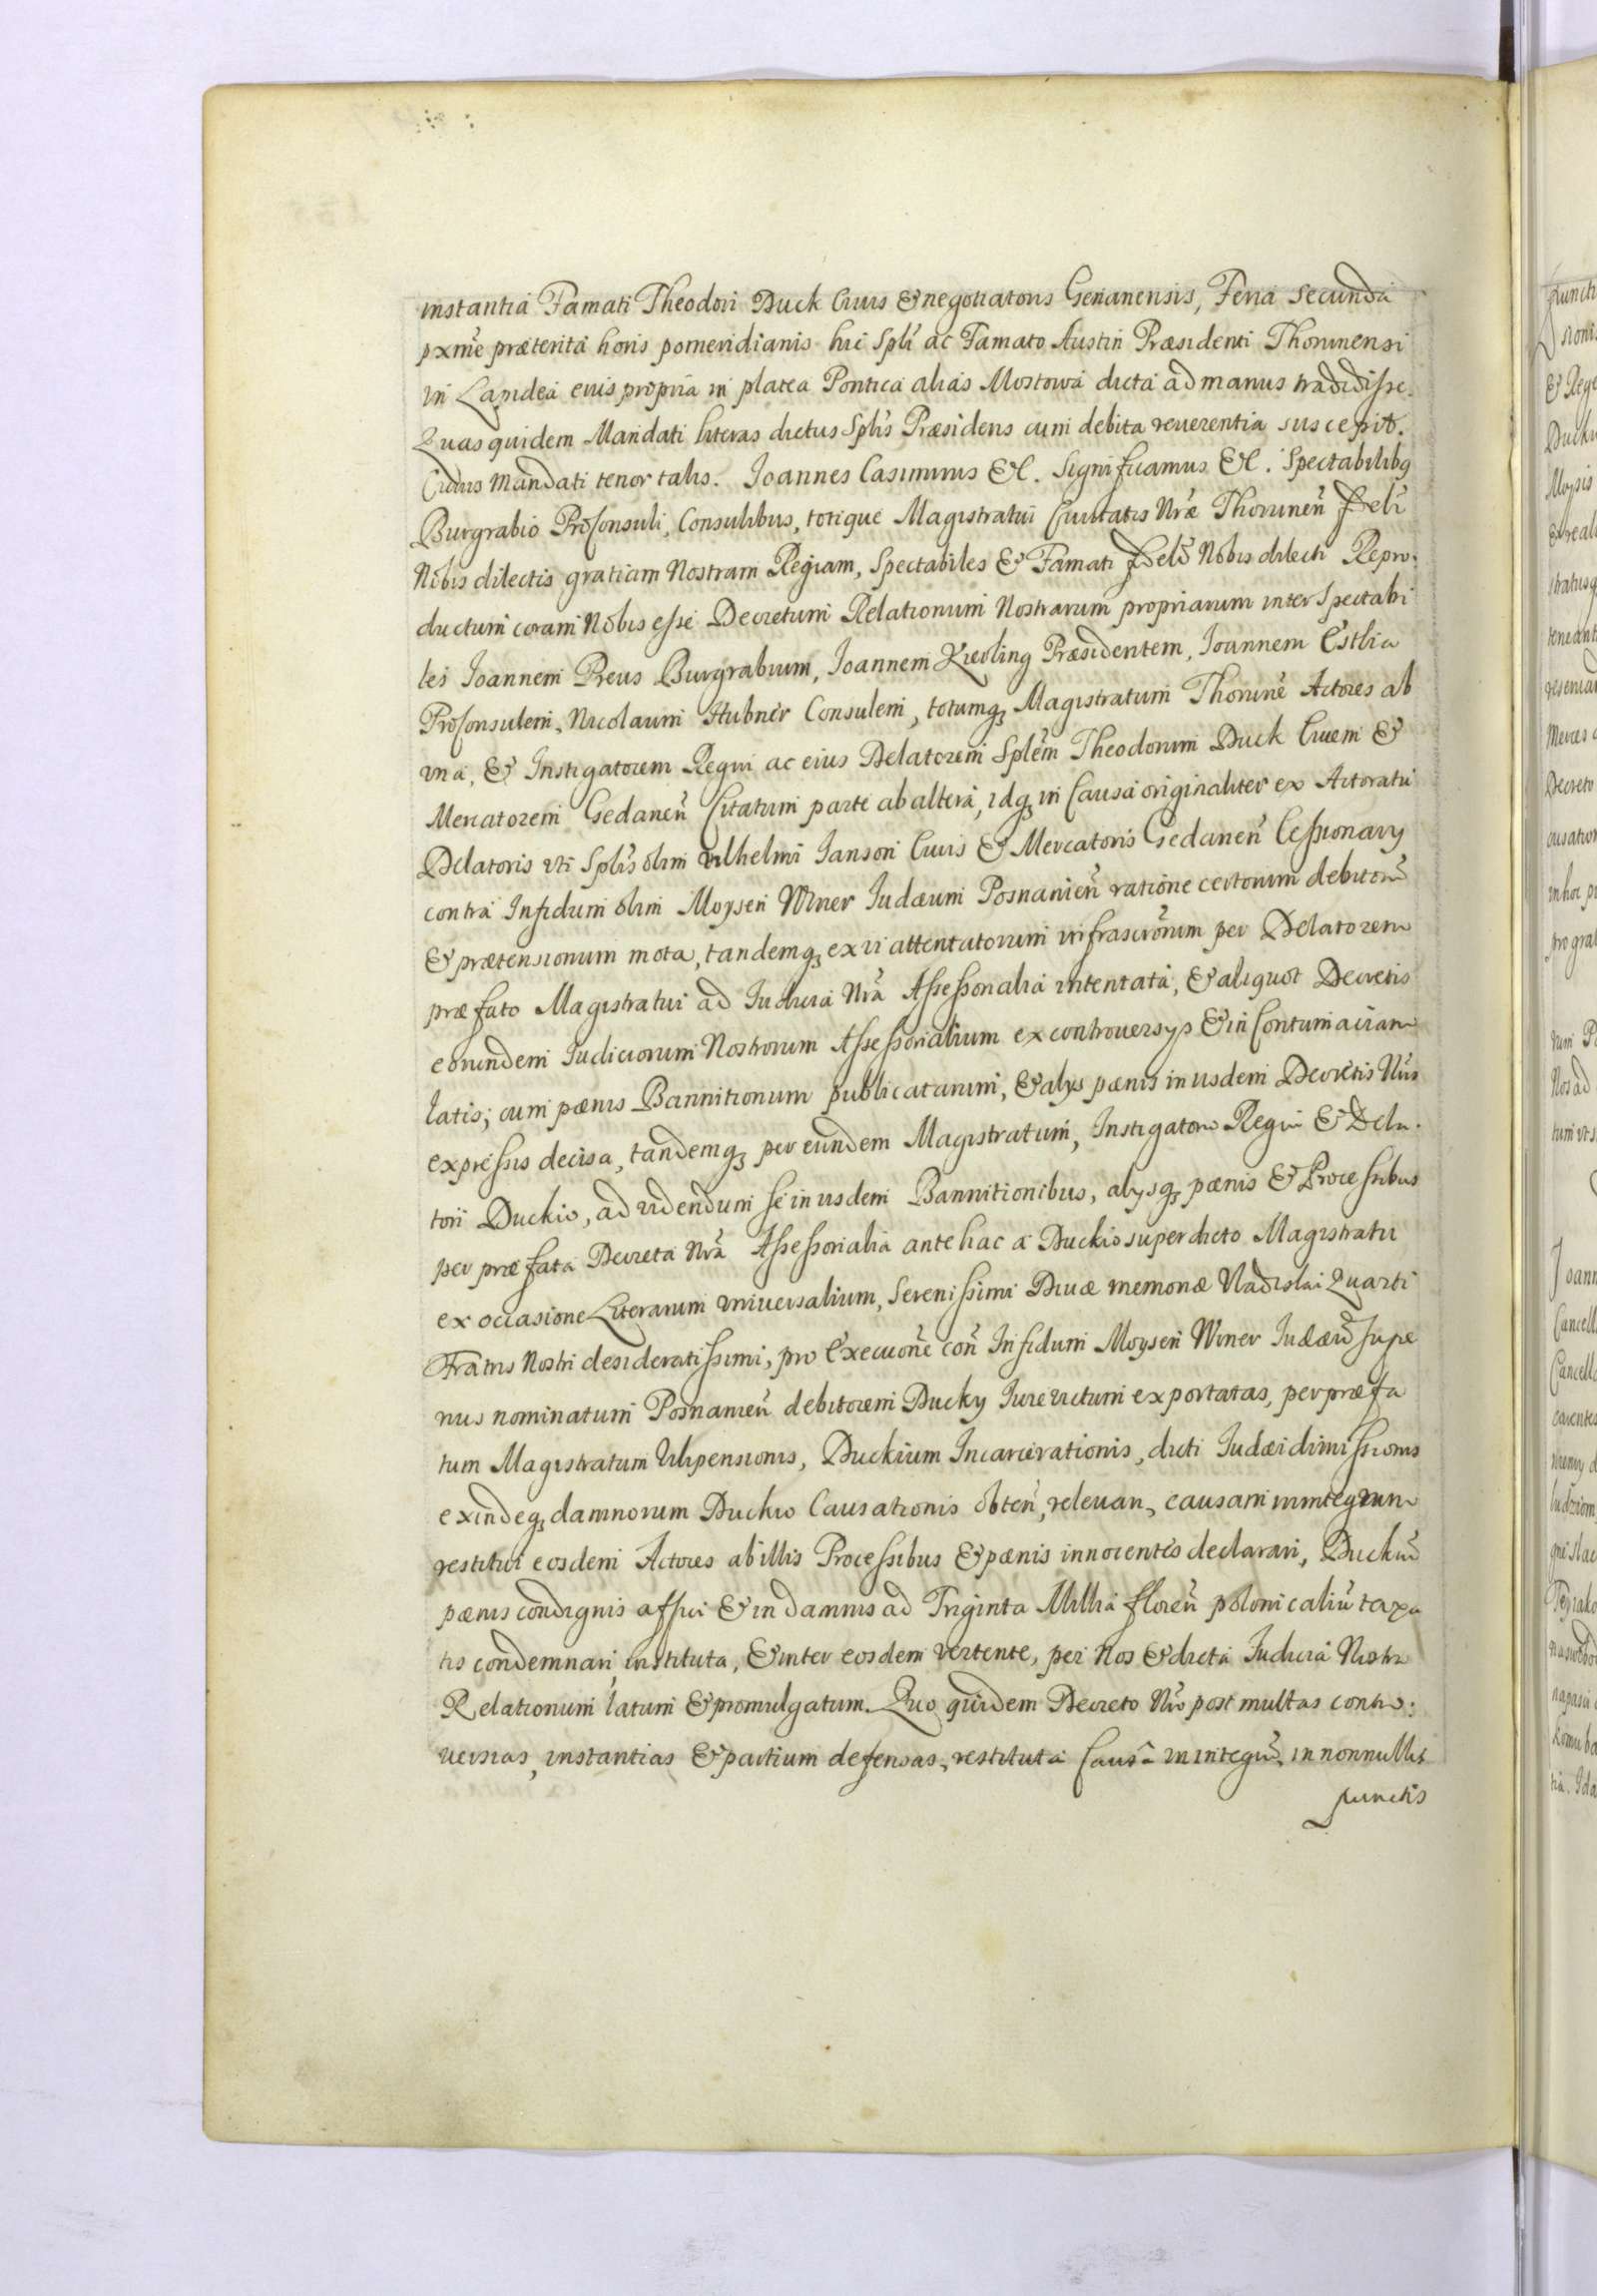 instantia Famati Theodori Duck Civis & negotiatoris Gedanensis, Feria Secunda
pxme præterita horis pomeridianis hic Spli ac Famato Austin Præsidenti Thorunensi
in Lapidea eius propria in platea Pontica alias Mostowa dicta ad manus tradidisse.
Quas quidem Mandati literas dictus Splis Præsidens cum debita reuerentia suscepit.
Cuius Mandati tenor talis. Ioannes Casimirus &c. Significamus &c. Spectabilibq
Burgrabio ProConsuli, Consulibus, totique Magistratui Ciuitatis Nræ Thorunen fideli
Nobis dilectis gratiam Nostram Regiam, Spectabiles & Famati fideles Nobis dilecti Repro-
ductum coram Nobis esse Decretum Relationum Nostrarum propriarum inter Spectabi
les Ioannem Preus Burgrabium, Ioannem Kisling Præsidentem, Ioannem Estkia
ProConsulem, Nicolaum Hubner Consulem, totumq; Magistratum Thorune Actores ab
vna, & Instigatorem Regni ac eius Delatorem Splem Theodorum Duck Ciuem &
Mercatorem Gedanen Citatum parte ab altera, idq; in Causa originaliter ex Actoratu
Delatoris vti Splis olim Vilhelmi Ianson Ciuis & Mercatoris Gedanen Cessionarij
contra Infidum olim Moysen Winer Iudæum Posnanien ratione certorum debitoru
& prætensionum mota, tandemq; ex vi attentatorum infrascrorum per Delatorem
præfato Magistratui ad Iudicia Nra Assessorialia intentata, & aliquot Decretis
eorundem Iudiciorum Nostrorum Assessorialium ex controuersijs & in Contumaciam
latis; cum pænis Bannitionum publicatarum, & alijs pænis in ijsdem Decretis Nris
expressis decisa, tandemq; per eundem Magistratum, Instigatori Regni & Dela-
tori Duckio, ad videndum se in ijsdem Bannitionibus, alijsq; pænis & Processibus
per præfata Decreta Nra Assessorialia antehac a Duckio super dicto Magistratu
ex occasione Literarum vniuersalium, Serenissimi Diuæ memoriæ Vladislai Quarti
Fratris Nostri desideratissimi, pro Execuone con Infidum Moysen Winer Iudæu supe
rius nominatum Posnanien debitorem Duckij Iure victum exportatas, per præfa
tum Magistratum Vilipensionis, Duckium Incarcerationis, dicti Iudæi dimissionis
exindeq; damnorum Duckio Causationis obten, releuan, causam in integrum
restitui eosdem Actores ab illis Processibus & pænis innocentes declarari, Duckiu
pænis condignis affici & in damnis ad Triginta Millia floren polonicaliu taxa
tis condemnari, instituta, & inter eosdem vertente, per Nos & dicta Iudicia Nostra
Relationum latum & promulgatum. Quo quidem Decreto Nro post multas contro-
uersias, instantias & partium defensas, restituta Causa in integru, in nonnullis
punctis